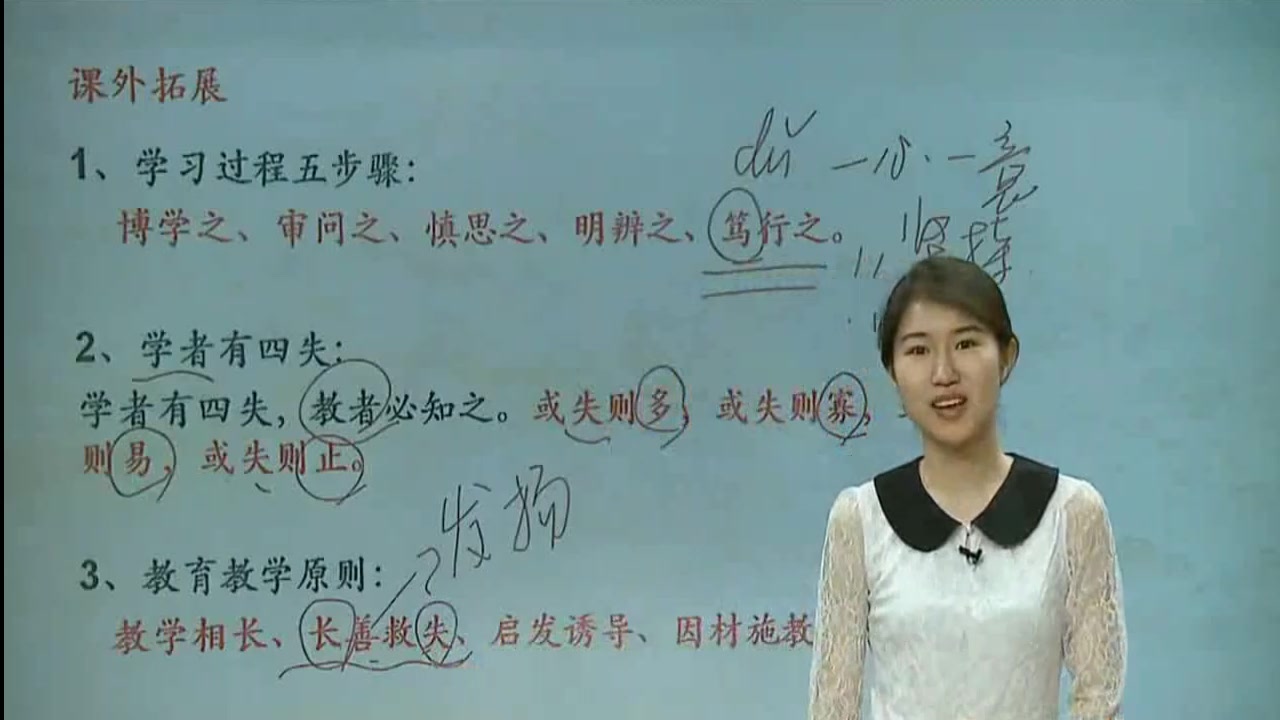 课外拓展
1、学习过程五步骤：
博学之、审问之、慎思之、明辨之、笃行之。
dǔ 一心一意
坚持
2、学者有四失：
学者有四失，教者必知之。或失则多，或失则寡，
则易，或失则止。
发扬
3、教育教学原则：
教学相长、长善救失、启发诱导、因材施教